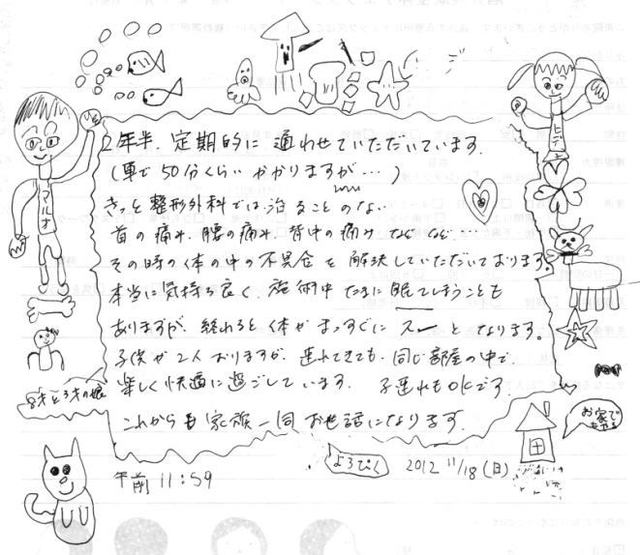 2年半、定期的に通わせていただいています。
(車で50分くらいかかりますが…)
きっと整形外科では治ることのない
首の痛み、腰の痛み、背中の痛みなどなど…
その時の体の中の不具合を解決していただいております。
本当に気持ち良く、施術中たまに眠ってしまうことも
ありますが、終わると体がまっすぐにスーとなります。
子供が2人おりますが、連れてきても、同じ部屋の中で、
楽しく快適に過ごしています。子連れもOKです。
これからも家族一同お世話になります。
よろぴく
2012 11/18(日)
午前11:59
マルオ
ヒデ
8才と3才の娘
お家で